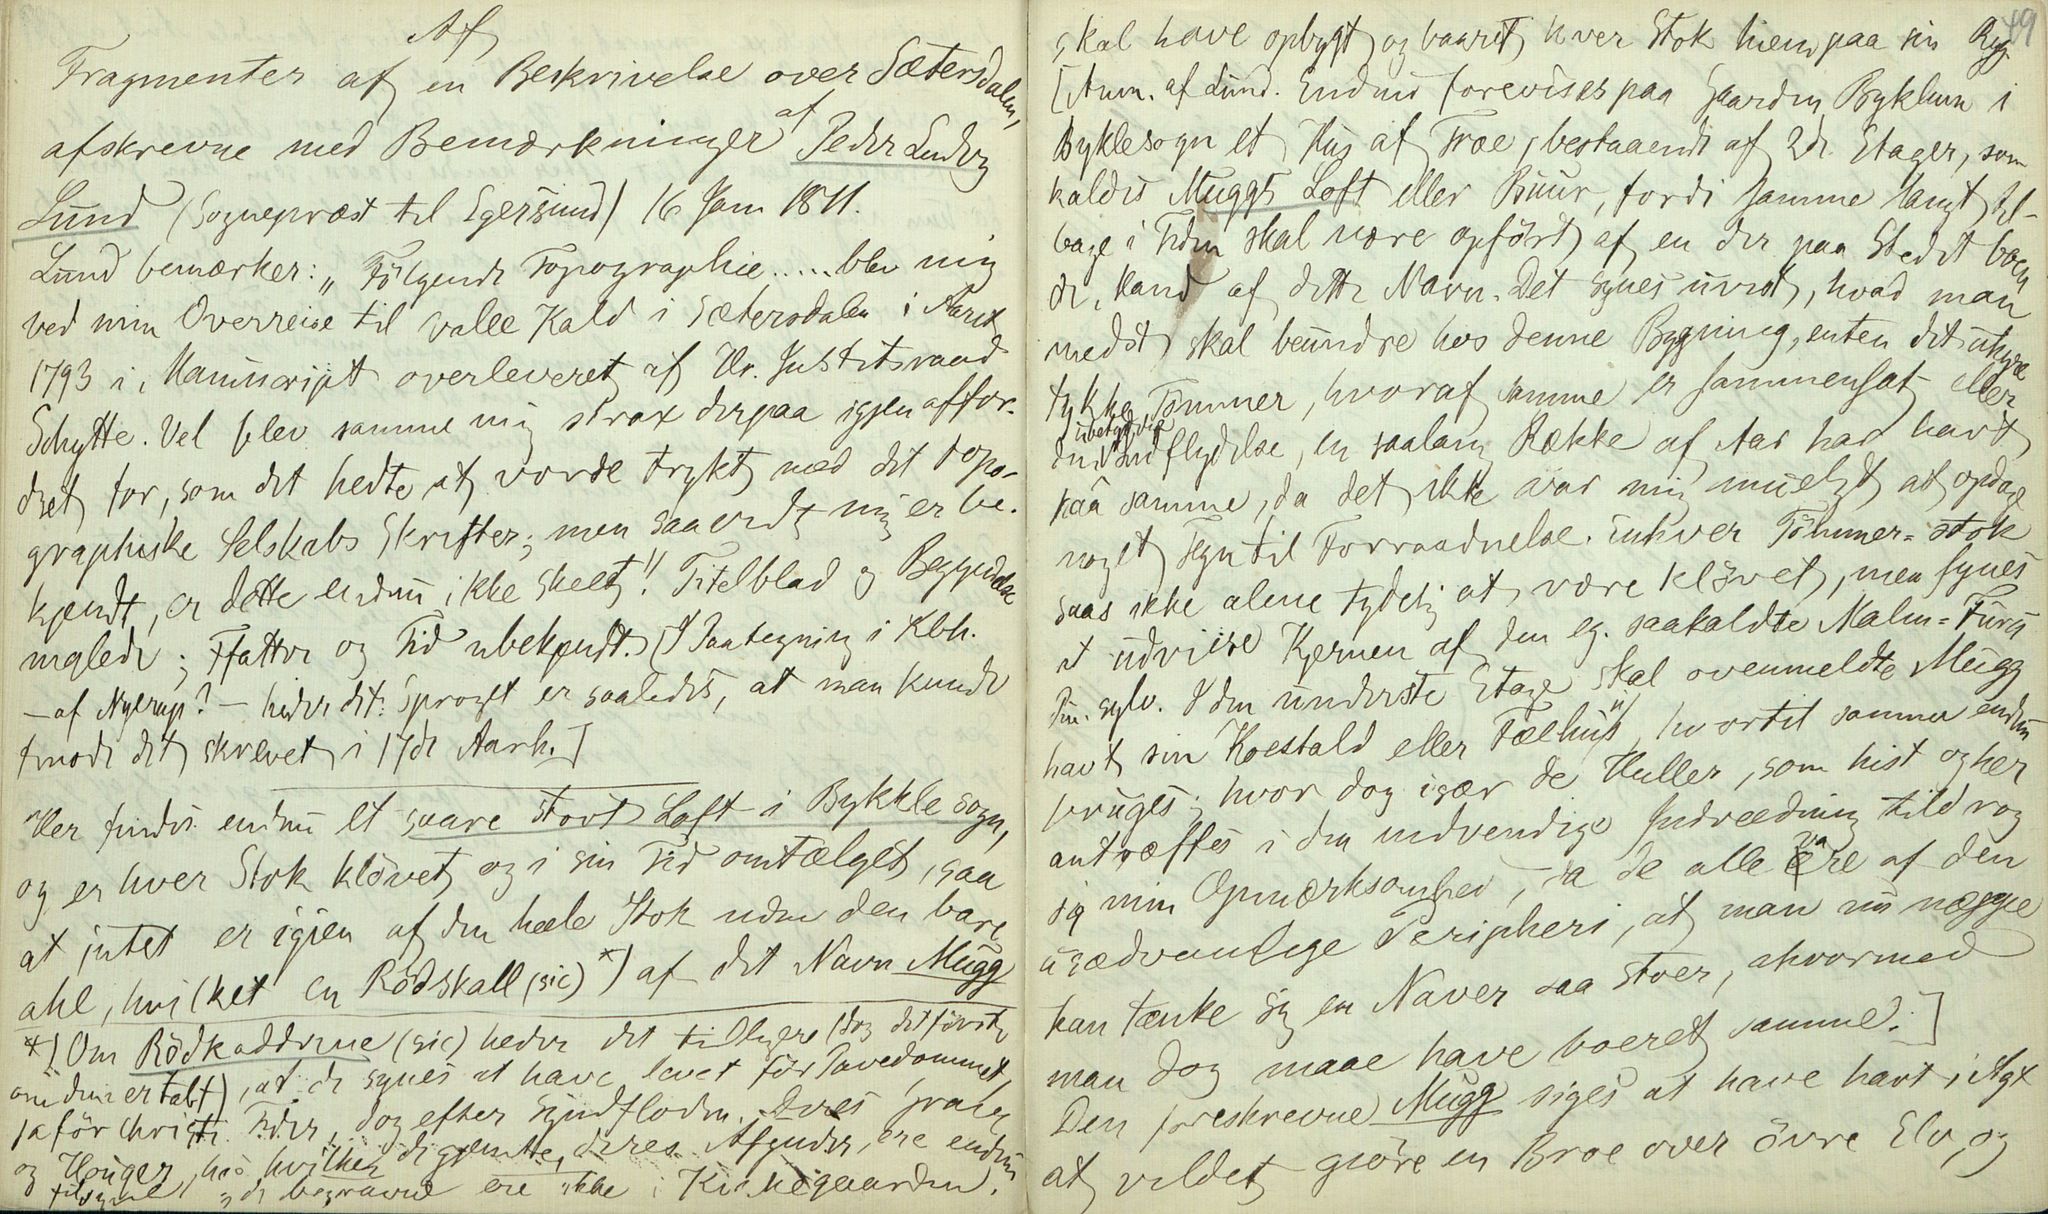 Af
Fragmenter af en Beskrivelse over Sætersdalen,
afskrevne med Bemærkninger af Peder Ludvig
Lund (Sognepræst til Egersund) 16 Jan 1811.
Lund bemærker: „Følgende Topographie..... blev mig
ved min Overreise til Valle Kald i Sætersdalen i Aaret
1793 i Manuscript overleveret af Hr. Justitsraad
Schytte. Vel blev samme mig strax derpaa igjen affor-
dret for, som det hedte at vorde trykt med det topo-
graphiske Selskabs Skrifter; men saavidt mig er be-
kjendt, er dette endnu ikke skeet!" Titelblad og Begyndelse
mglede; Ffatter og Tid ubekjendt. [I Paategning i Kbh.
– af Nyerup? – heder det: Sproget er saaledes, at man kunde
fmode det skrevet i 17de Aarh.]
Her findes endnu et saare stort Loft i Bykkle sogn,
og er hver Stok kløvet og i sin Tid omtælget, saa
at intet er igjen af den heele Stok uden den bare
ahl, hvilket en Rødskall (sic) *) af det Navn Mugg
*) Om Rødkadderne (sic) heder det tidligere (dog det første
om dem er tabt), at de synes at have levet før Pavedommet,
ja før Christi Tider, dog efter Syndfloden. Deres Grave
og Houger, hos hvilken de gjemte deres Afguder, ere endnu
tilsyne, „de begravne ere ikke i Kirkegaarden.
49
skal have opbygt og baaret hver Stok hiem paa sin Ryg
[Anm. af Lund. Endnu forevises paa Gaarden Byklum i
Byklesogn et Huus af Træe, bestaaende af 2de Etager, som
kaldes Muggs Loft eller Buur, fordi samme langt til-
bage i Tiden skal være opført af en der paa Stedet boen-
de Mand af dette Navn. Det synes uvist, hvad man
medst skal beundre hos denne Bygning, enten det uhyre
tykke Tømmer, hvoraf samme er sammensat eller
den ubetydelige Indflydelse, en saalang Række af Aar har havt
paa samme, da det ikke var mig mueligt at opdage
noget Tegn til Forraadnelse. Enhver Tømmer-stok
saas ikke alene tydelig at være kløvet, men synes
at udvise Kjernen af den eg. saakaldte Malm-Furu
Pin. sylv. I den underste Etage skal ovenmeldte Mugg
havt sin Koestald eller Fælhus, hvortil samme endnu
bruges; hvor dog især de Huller, som hist og her
antræffes i den indvendige Indretning tildrog
sig min Opmærksomhed, da de alle vare af den
usædvanlige Peripheri, at man nu neppe
kan tænke sig en Naver saa stoer, ahvormed
man dog maae have boeret samme.]
Den foreskrevne Mugg siges at have havt i Agt
at vildet giøre en Broe over øvre Elv, og